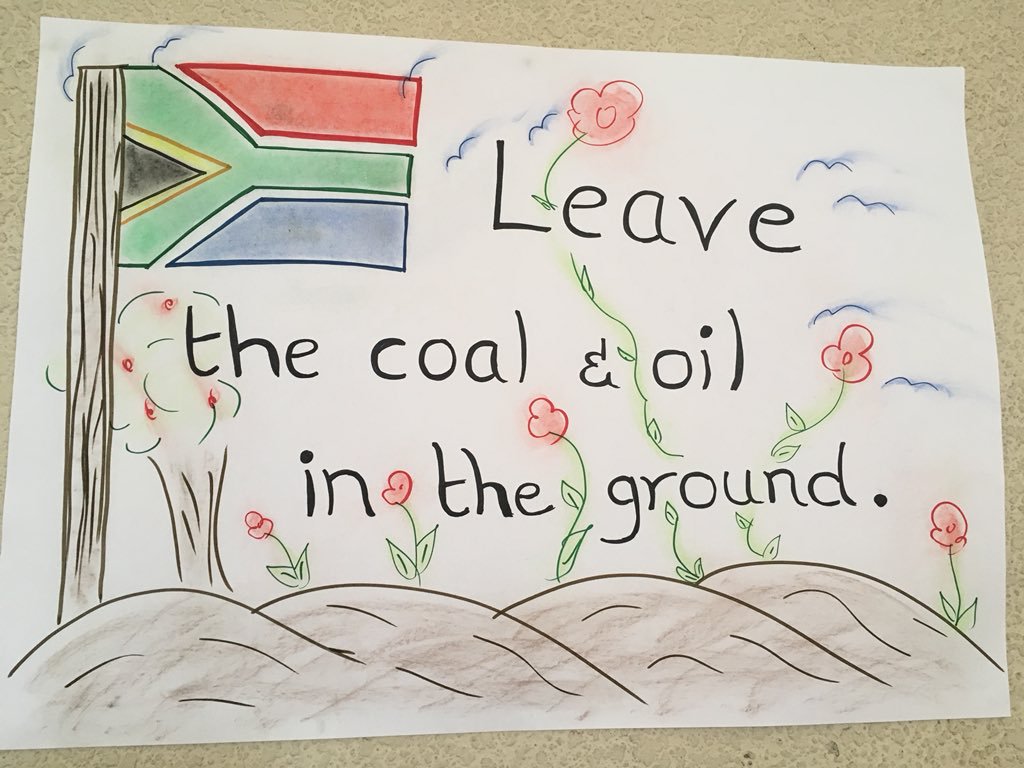 Leave
the coal & oil
in the ground.